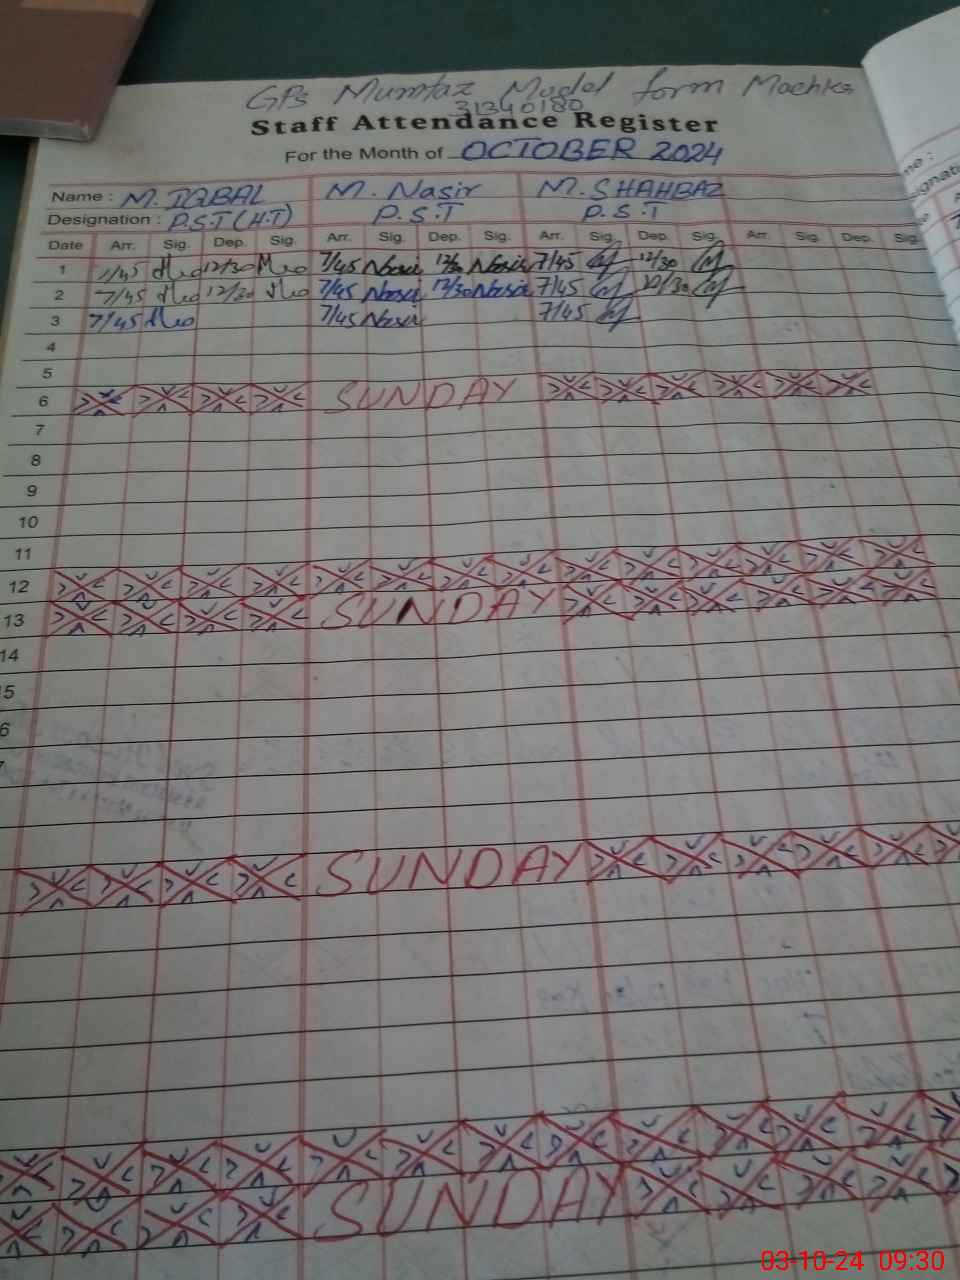 GPs Mumtaz Model form Machka
31340180
Staff Attendance Register
For the Month of OCTOBER 2024
Name : M. IQBAL M. Nasir M. SHAHBAZ
Designation : P.S.T (H.T) P.S.T P.S.T
Date Arr. Sig. Dep. Sig. Arr. Sig. Dep. Sig. Arr. Sig. Dep. Sig. Arr. Sig. Dep. Sig.
1 7/45 12/30 7/45 Nasir 12/30 Nasir 7/45 12/30
2 7/45 12/30 7/45 Nasir 12/30 Nasir 7/45 12/30
3 7/45 7/45 Nasir 7/45
4
5
6 SUNDAY
7
8
9
10
11
12
13 SUNDAY
14
5
6
7
SUNDAY
SUNDAY
03-10-24 09:30